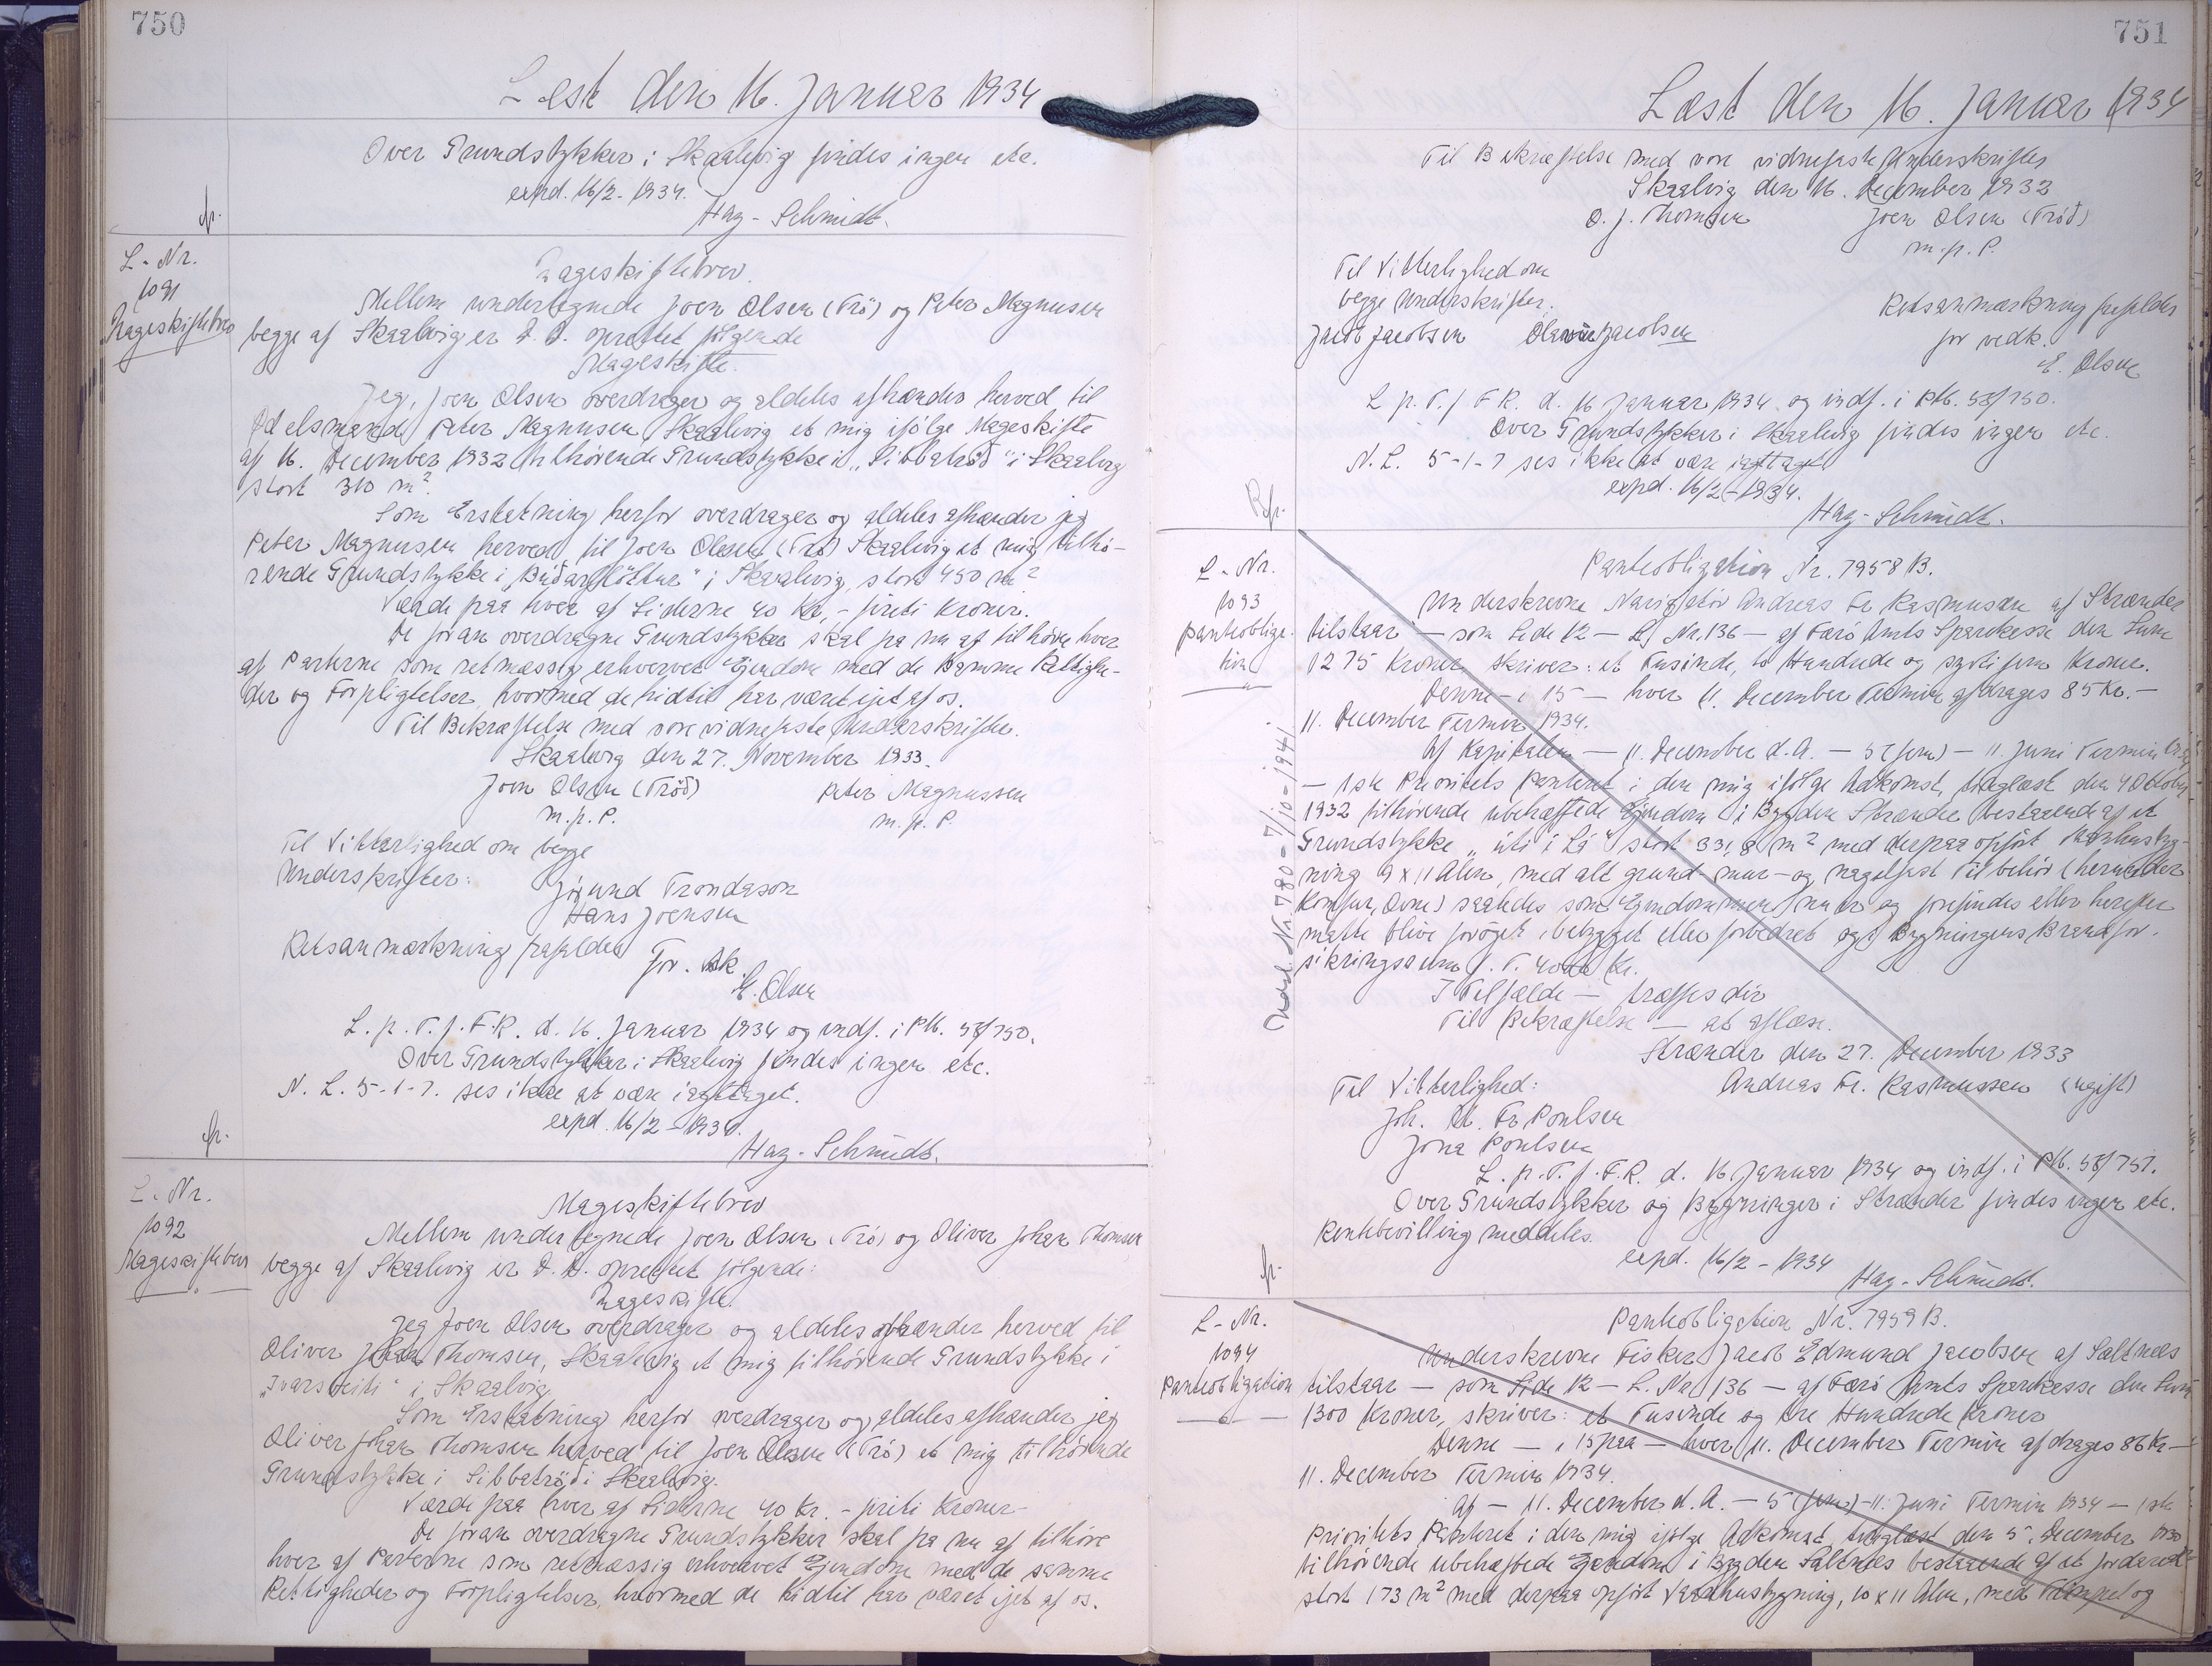 750
Læst den 16. Januar 1934
Over Grundstykker i Skaalevig findes ingen etc.
expd. 16/2 - 1934.
Hag-Schmidt.
fr.
L-Nr.
1091
Mageskiftebrev
Mageskiftebrev.
Mellem undertegnede Joen Olsen (Trö) og Peter Magnusen
begge af Skaalevig er D. D. oprettet fölgende
Mageskifte.
Jeg, Joen Olsen overdrager og aldeles afhænder herved til
Odelsmand Peter Magnusen, Skaalevig et mig ifölge Mageskifte
af 16. December 1932 tilhörende Grundstykke i „Sibbatröð" i Skaalevig
stort 310 m².
Som Erstatning herfor overdrager og aldeles afhænder jeg
Peter Magnusen herved til Joen Olsen (Trö) Skaalevig et mig tilhö-
rende Grundstykke i „Búðarfløttur" i Skaalevig, stort 450 m²
Værdi paa hver af Siderne 40 Kr,- firti Kroner.
De foran overdragne Grundstykker skal fra nu af tilhöre hver
af Parterne som retmæssig erhvervet Ejendom med de samme Rettighe-
der og Forpligtelser, hvormed de hidtil har været ejet af os.
Til Bekræftelse med vore vidnefaste Underskrifter.
Skaalevig den 27. November 1933.
Joen Olsen (Tröð) Peter Magnussen
m. p. P. m. p. P
Til Vitterlighed om begge
Underskrifter:
Jógund Trondason
Hans Joensen
Retsanmærkning frafaldes
For. vedk.
E. Olsen
L. p. T. f. F. R. d. 16. Januar 1934 og indf. i PM. 58/750.
Over Grundstykker i Skaalevig findes ingen etc.
N. L. 5-1-7. ses ikke at være iagttaget.
expd. 16/2 - 1934.
fr.
Hag-Schmidt.
L-Nr.
1092
Mageskiftebrev
Mageskiftebrev
Mellem undertegnede Joen Olsen (Trö) og Oliver Johan Thomsen
begge af Skaalevig er D. D. oprettet fölgende:
Mageskifte.
Jeg Joen Olsen overdrager og aldeles afhænder herved til
Oliver Johan Thomsen, Skaalevig et mig tilhörende Grundstykke i
„Ivarsteiti" i Skaalevig.
Som Erstatning herfor overdrager og aldeles afhænder jeg
Oliver Johan Thomsen herved til Joen Olsen (Trö) et mig tilhörende
Grundstykke i Sibbatröð i Skaalevig.
Værdi paa hver af Siderne 40 Kr. - firti Kroner
De foran overdragne Grundstykker skal fra nu af tilhöre
hver af Parterne som retmæssig erhvervet Ejendom med de samme
Rettigheder og Forpligtelser, hvormed de hidtil har været ejet af os.
751
Læst den 16. Januar 1934
Til Bekræftelse med vore vidnefaste Underskrifter
Skaalevig den 16. December 1932
O. J. Thomsen Joen Olsen (Tröð)
m. p. P.
Til Vitterlighed om
begge Underskrifter.
Jacob Jacobsen Olavur Jacobsen
Retsanmærkning frafaldes
for vedk.
E. Olsen
L. p. T. f. F. R. d. 16 Januar 1934 og indf. i PM. 58/750.
Over Grundstykker i Skaalevig findes ingen etc.
N. L. 5-1-7 ses ikke at være iagttaget
expd. 16/2 - 1934.
Hag-Schmidt.
L-Nr.
1093
Pantobliga-
tion
Panteobligation Nr. 7958 B.
Underskrevne Navigatör Andreas Fr. Rasmussen af Strænder
tilstaar — som Side 12 — L. Nr. 136 — af Færö Amts Sparekasse den Sum
1275 Kroner, skriver: et Tusinde, to Hundrede og syvti fem Kroner.
Denne — i 15 — hver 11. December Termin afdrages 85 Kr. —
11. December Termin 1934.
Af Kapitalen — 11. December d. A. — 5 (fem) — 11. Juni Termin 1934
— 1ste Prioritets Panteret i den mig ifölge Adkomst, tinglæst den 4 Oktober
1932 tilhörende ubehæftede Ejendom i Bygden Strænder bestaaende af et
Grundstykke „úti í Lá" stort 331,8 m² med derpaa opfört Vaanhusbyg-
ning 9 x 11 Alen, med alt grund- mur- og nagelfast Tilbehör (herunder
Komfur, Ovne) saaledes som Ejendommen nu er og forefindes eller herefter
maatte blive foröget, bebygget eller forbedret og i Bygningens Brandfor-
sikringssum p. T. 4000 Kr.
I Tilfælde — træffes dér
Til Bekræftelse — at aflæse.
Strænder den 27. December 1933
Til Vitterlighed: Andreas Fr. Rasmussen (ugift)
Joh. M. Fr. Poulsen
Jóna Poulsen
L. p. T. f. F. R. d. 16 Januar 1934 og indf. i PM. 58/751.
Over Grundstykker og Bygninger i Strænder findes ingen etc.
Rentebevilling meddeles.
expd. 16/2 - 1934
fr.
Hag-Schmidt.
L-Nr.
1094
Panteobligation
Panteobligation Nr. 7959 B.
Underskrevne Fisker Jacob Edmund Jacobsen af Saltnes
tilstaar — som Side 12 — L. Nr. 136 — af Færö Amts Sparekasse den Sum
1300 Kroner, skriver: et Tusinde og tre Hundrede Kroner
Denne — i 15 paa — hver 11. December Termin afdrages 86 Kr —
11. December Termin 1934.
Af — 11. December d. A. — 5 (fem) — 11. Juni Termin 1934 — 1ste
Prioritets Panteret i den mig ifölge Adkomst, tinglæst den 5. December 1933
tilhörende ubehæftede Ejendom i Bygden Saltnes bestaaende af et Jordareal
stort 173 m² med derpaa opfört Vaanhusbygning, 10 x 11 Alen, med Trampel og